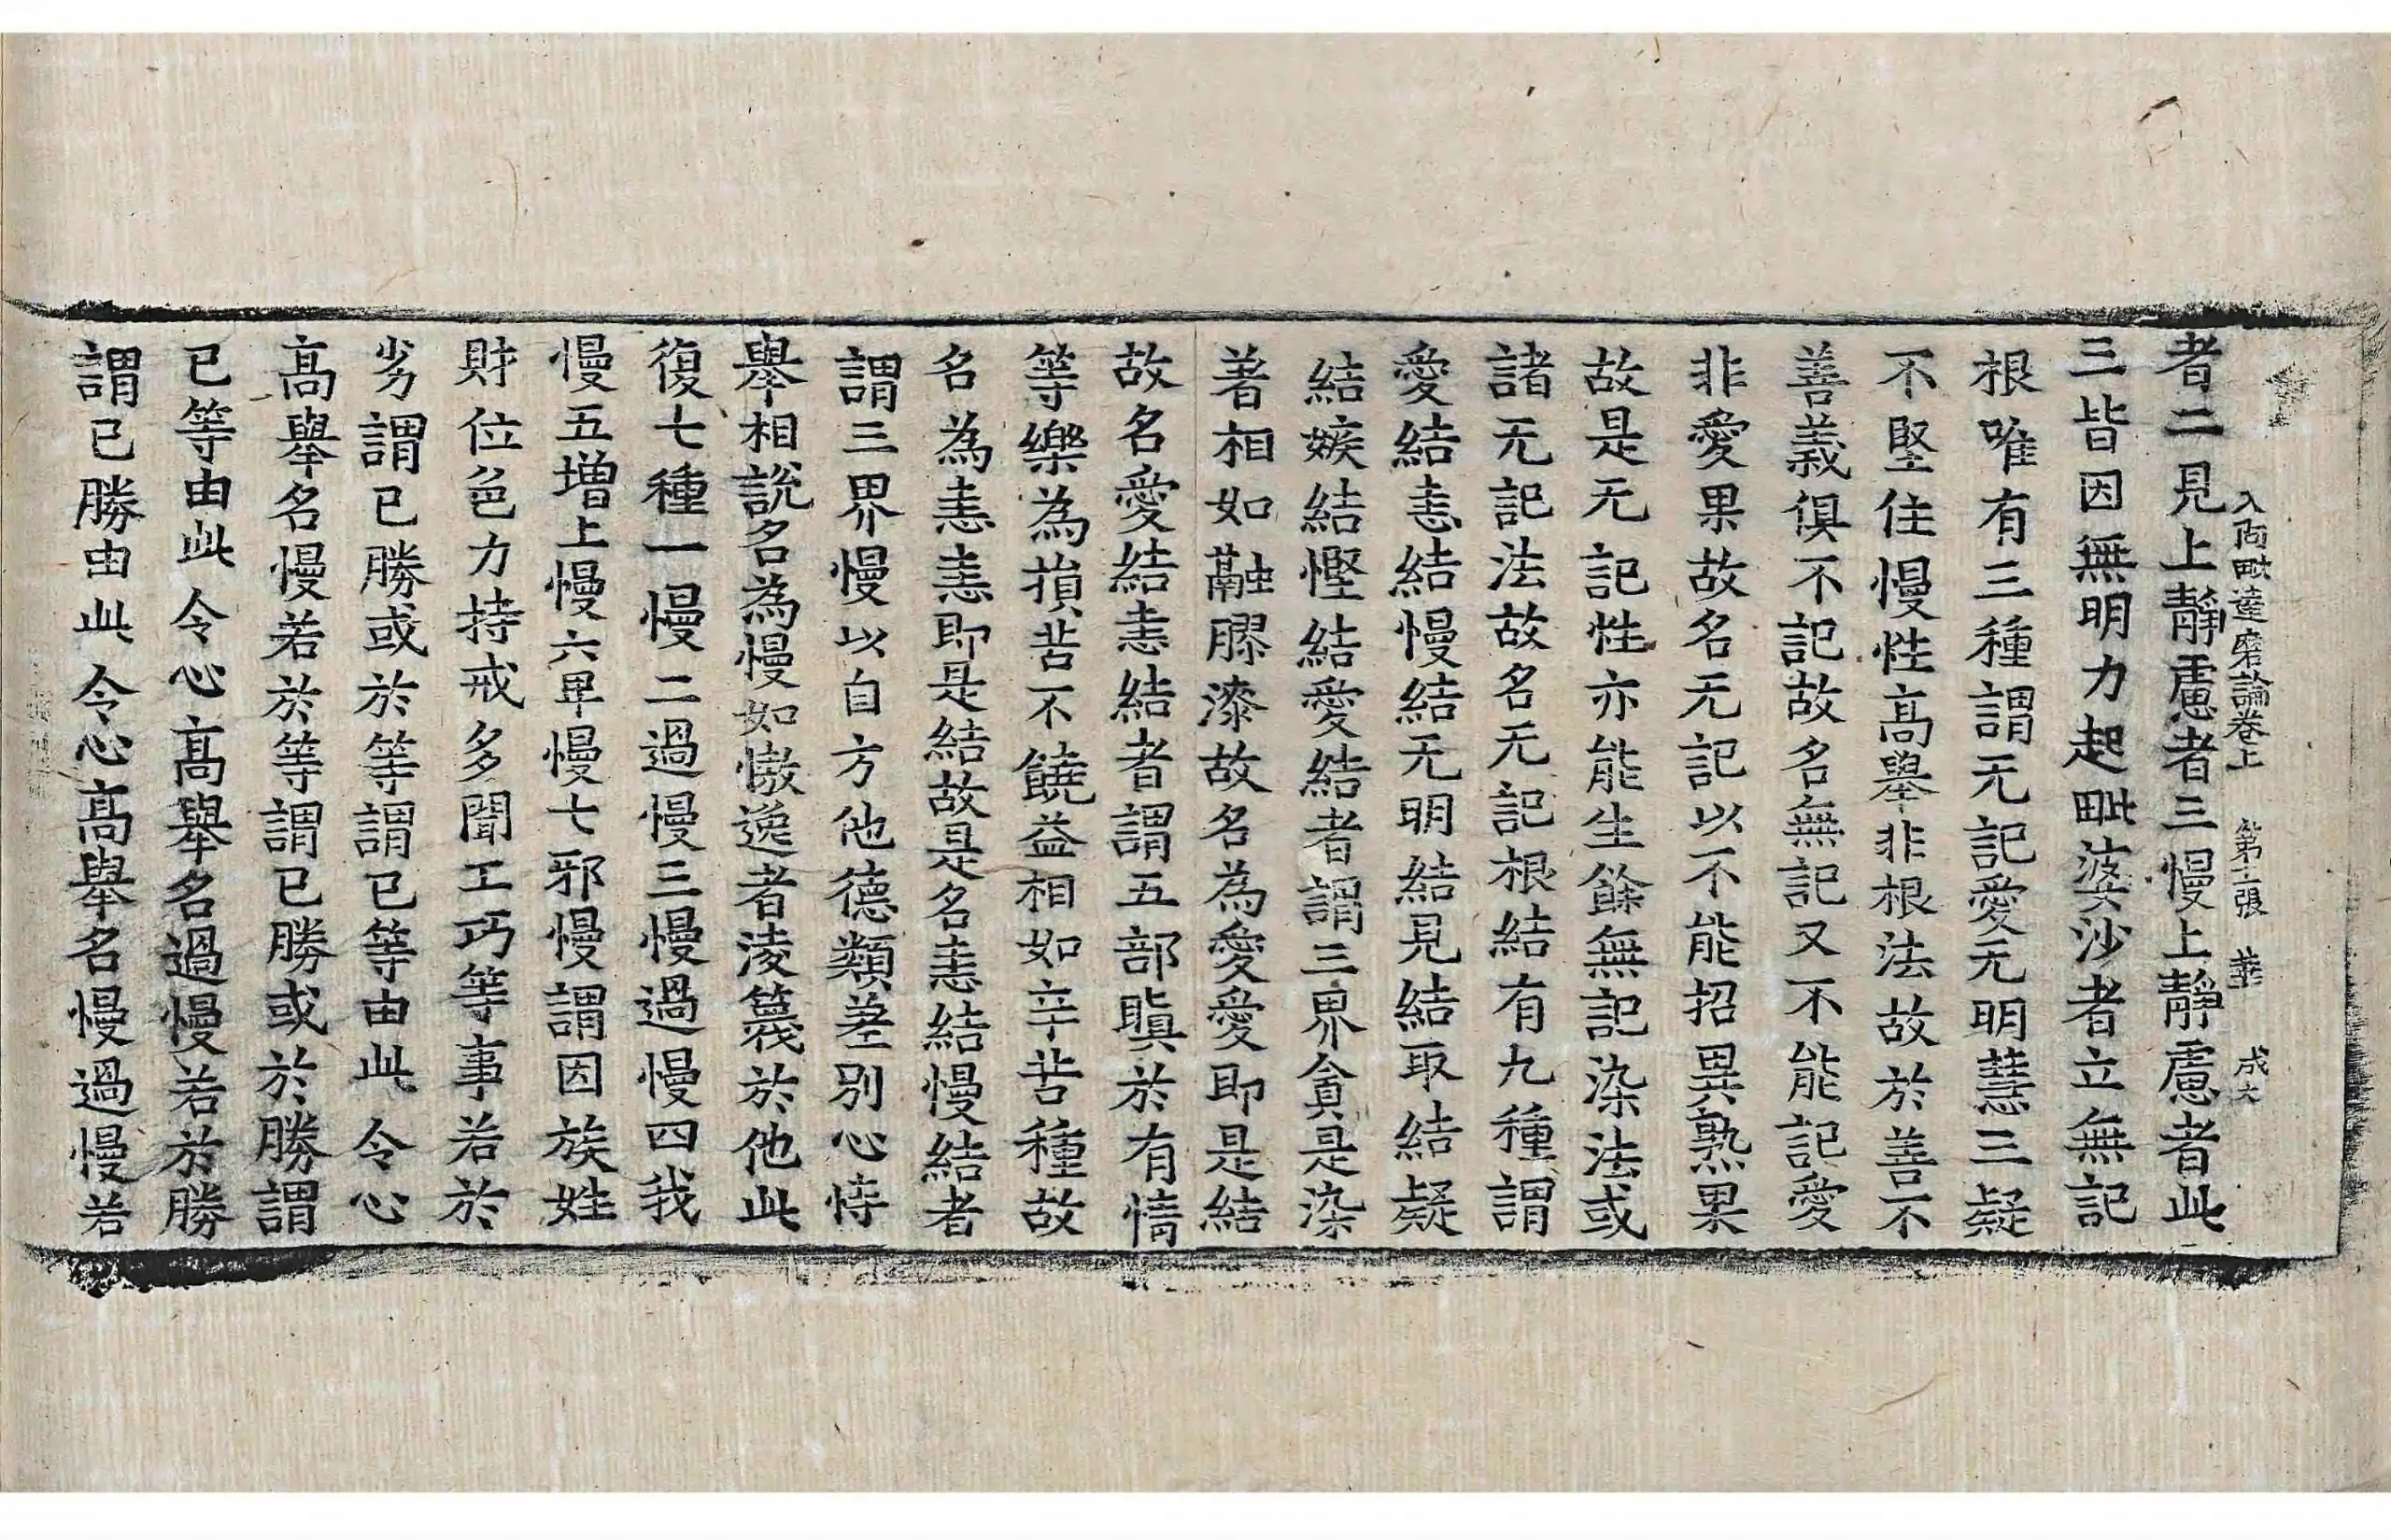 入阿毗達磨論卷上 第十張 華 成大
者二見上靜慮者三慢上靜慮者此
三皆因無明力起毗婆沙者立無記
根唯有三種謂无記愛无明慧三疑
不堅住慢性髙舉非根法故於善不
善義俱不記故名無記又不能記愛
非愛果故名无記以不能招異熟果
故是无記性亦能生餘無記染法或
諸无記法故名无記根結有九種謂
愛結恚結慢結无明結見結取結疑
結嫉結慳結愛結者謂三界貪是染
著相如融膠漆故名為愛愛即是結
故名愛結恚結者謂五部瞋於有情
等樂為損苦不饒益相如辛苦種故
名為恚恚即是結故是名恚結慢結者
謂三界慢以自方他德類差別心恃
舉相說名為慢如慠逸者淩篾於他此
復七種一慢二過慢三慢過慢四我
慢五增上慢六卑慢七邪慢謂因族姓
財位色力持戒多聞工巧等事若於
劣謂已勝或於等謂已等由此令心
髙舉名慢若於等謂已勝或於勝謂
已等由此令心髙舉名過慢若於勝
謂已勝由此令心髙舉名慢過慢若